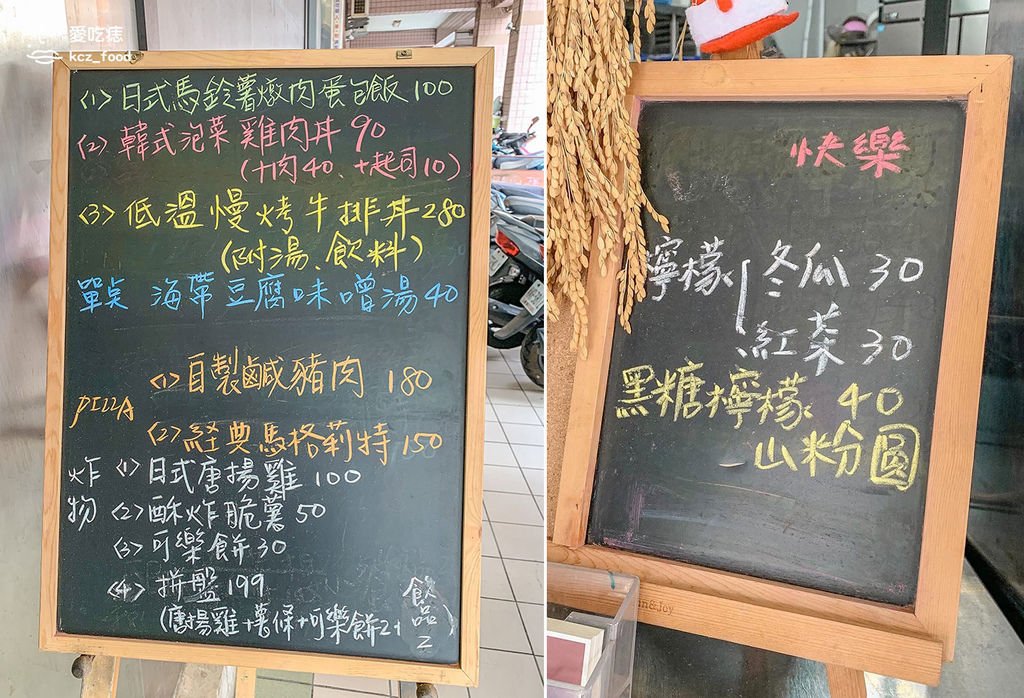 愛吃痣
kcz_food
<1> 日式馬鈴薯燉肉蛋包飯 100
<2> 韓式泡菜雞肉丼 90
(+肉40、+起司10)
<3> 低溫慢烤牛排丼 280
(附湯、飲料)
單點 海帶豆腐味噌湯 40
<1> 自製鹹豬肉 180
PIZZA
<2> 経典馬格莉特 150
炸物
<1> 日式唐揚雞 100
<2> 酥炸脆薯 50
<3> 可樂餅 30
<4> 拼盤 199
(唐揚雞+薯條+可樂餅2+飲品2)
快樂
檸檬 冬瓜 30
紅茶 30
黑糖檸檬 40
山粉圓